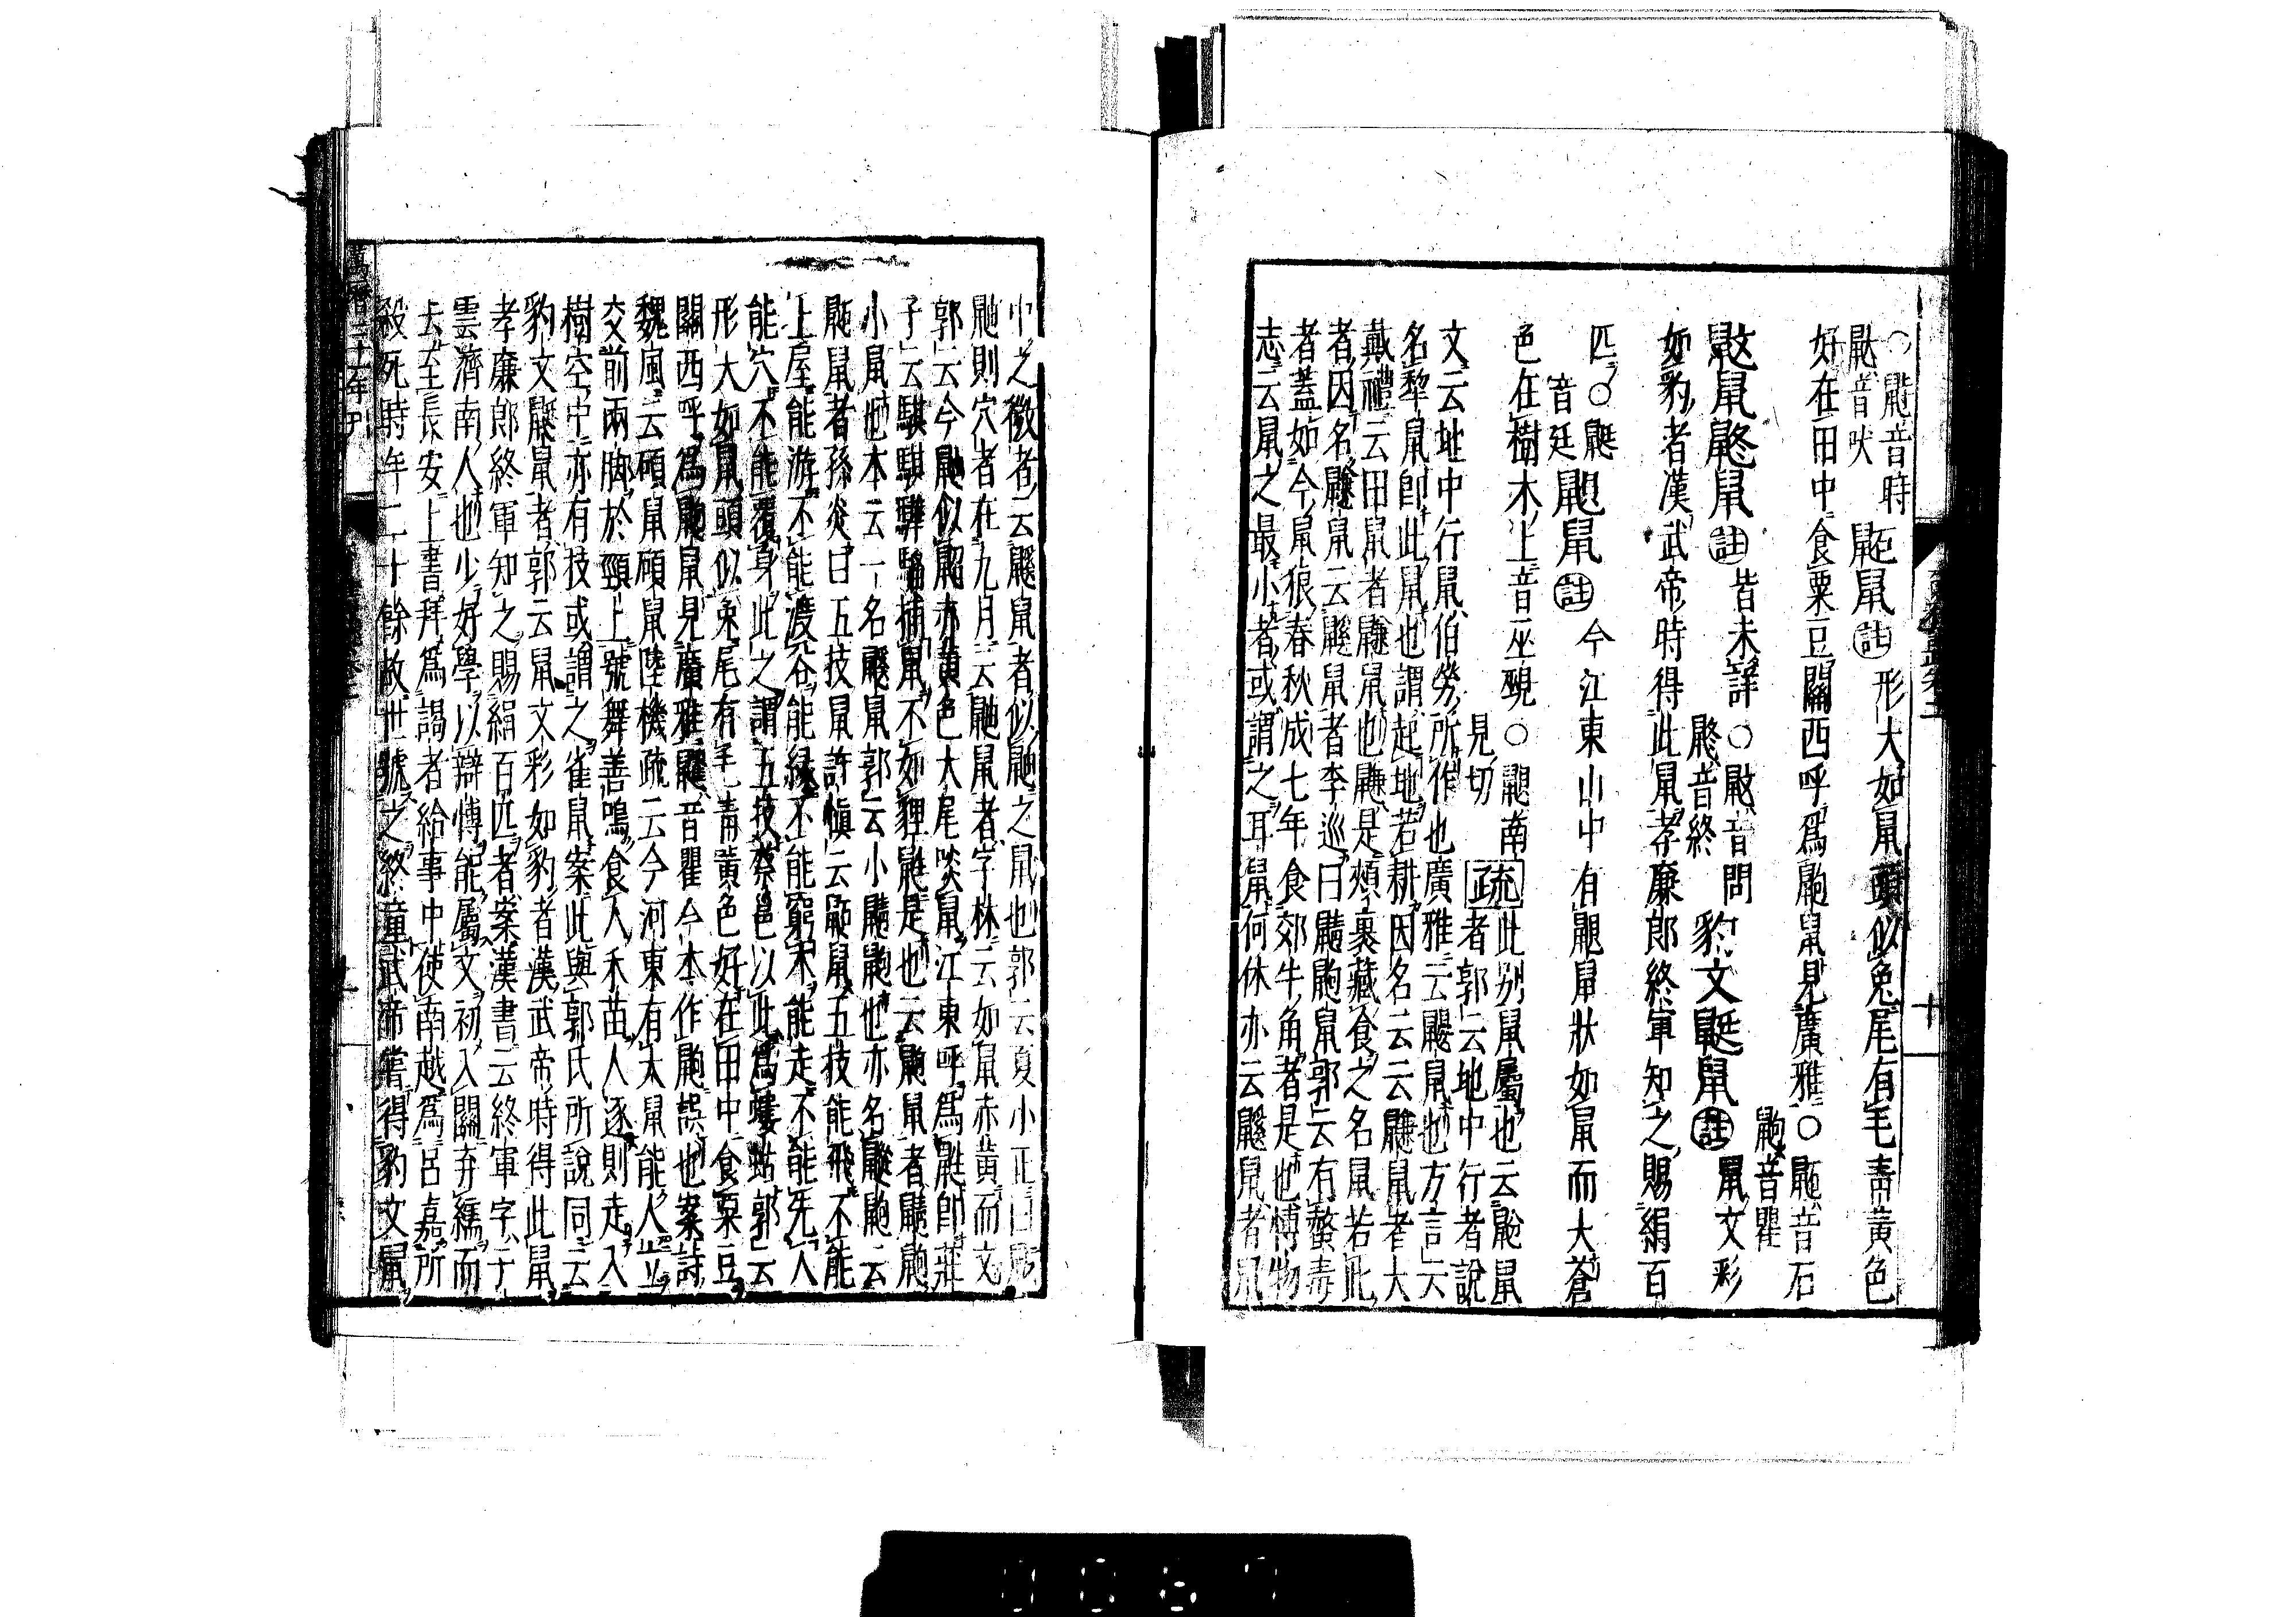 ○鼭音時鼣音吠鼫鼠註形大如鼠頭似兔尾有毛青黃色
好在田中食粟豆關西呼爲鼩鼠見廣雅○鼫音石鼩音瞿
鼤鼠鼨鼠註皆未詳○鼤音問鼨音終豹文鼮鼠註鼠文彩
如豹者漢武帝時得此鼠孝廉郎終軍知之賜絹百
匹○鼮音廷鼰鼠註今江東山中有鼰鼠狀如鼠而大蒼
色在樹木上音巫覡○鼰南見切疏此別鼠屬也云鼢鼠
者郭云地中行者說
文云地中行鼠伯勞所作也廣雅云鼹鼠也方言云
名犁鼠即此鼠也謂起地若耕因名云云鼸鼠者大
戴禮云田鼠者鼸鼠也鼸是頰裏藏食之名鼠若此
者因名鼸鼠云鼷鼠者李巡曰鼱鼩鼠郭云有螫毒
者蓋如今鼠狼春秋成七年食郊牛角者是也博物
志云鼠之最小者或謂之耳鼠何休亦云鼷鼠者鼠
中之微者云鼶鼠者似鼬之鼠也郭云夏小正曰鼶
鼬則穴者在九月云鼬鼠者字林云如鼠赤黃而文
郭云今鼬似鼦赤黃色大尾啖鼠江東呼爲鼪即莊
子云騏驥驊騮捕鼠不如貍鼪是也云鼩鼠者鼱鼩
小鼠也本云一名鼷鼠郭云小鼱鼩也亦名䶂鼩云
鼫鼠者孫炎曰五技鼠許慎云鼫鼠五技能飛不能
上屋能游不能渡谷能緣不能窮木能走不能先人
能穴不能覆身此之謂五技蔡邕以此爲螻蛄郭云
形大如鼠頭似兔尾有毛青黃色好在田中食粟豆
關西呼爲鼩鼠見廣雅鼩音瞿今本作鼩誤也案詩
魏風云碩鼠碩鼠陸機疏云今河東有大鼠能人立
交前兩脚於頸上號舞善鳴食人禾苗人逐則走入
樹空中亦有技或謂之雀鼠案此與郭氏所說同云
豹文鼮鼠者郭云鼠文彩如豹者漢武帝時得此鼠
孝廉郎終軍知之賜絹百匹者案漢書云終軍字子
雲濟南人也少好學以辯博能屬文初入關弃繻而
去至長安上書拜爲謁者給事中使南越爲呂嘉所
殺死時年二十餘故世號之終童武帝嘗得豹文鼠
萬曆二十一年刊